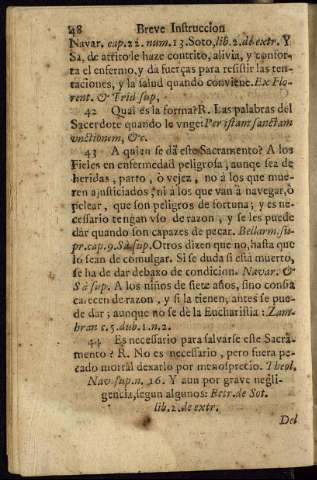 48 Breve Instruccion
Navar. cap.22. num.13. Soto, lib.2. de extr. Y
Sà, de atrito le haze contrito, alivia, y confor-
ta el enfermo, y dà fuerças para resistir las ten-
taciones, y la salud quando conviene. Ex Flo-
rent. & Trid sup.
42 Qual es la forma? R. Las palabras del
Sacerdote quando le vnge: Per istam sanctam
vnctionem, &c.
43 A quien se dà este Sacramento? A los
Fieles en enfermedad peligrosa, aunqe sea de
heridas, parto, ò vejez, no à los que mue-
ren ajusticiados, ni à los que van à navegar, ò
pelear, que son peligros de fortuna; y es ne-
cessario tengan vso de razon, y se les puede
dàr quando son capazes de pecar. Bellarm. su-
pr. cap.9. Sà sup. Otros dizen que no, hasta que
lo sean de comulgar. Si se duda si està muerto,
se ha de dar debaxo de condicion. Navar. &
Sà sup. A los niños de siete años, sino consta
carecen de razon, y si la tienen, antes se pue-
de dar; aunque no se dè la Eucharistia: Zam-
bran c.5. dub.1.n.2.
44 Es necessario para salvarse este Sacra-
mento? R. No es necessario, pero fuera pe-
cado mortal dexarlo por menosprecio. Theol.
Nav. sup. n. 16. Y aun por grave negli-
gencia, segun algunos: Petr. de Sot.
lib.2. de extr.
Del